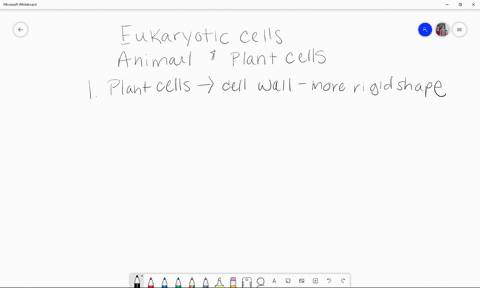 Microsoft Whiteboard
Eukaryotic cells
Animal & Plant cells
1. Plant cells → cell wall - more rigid shape